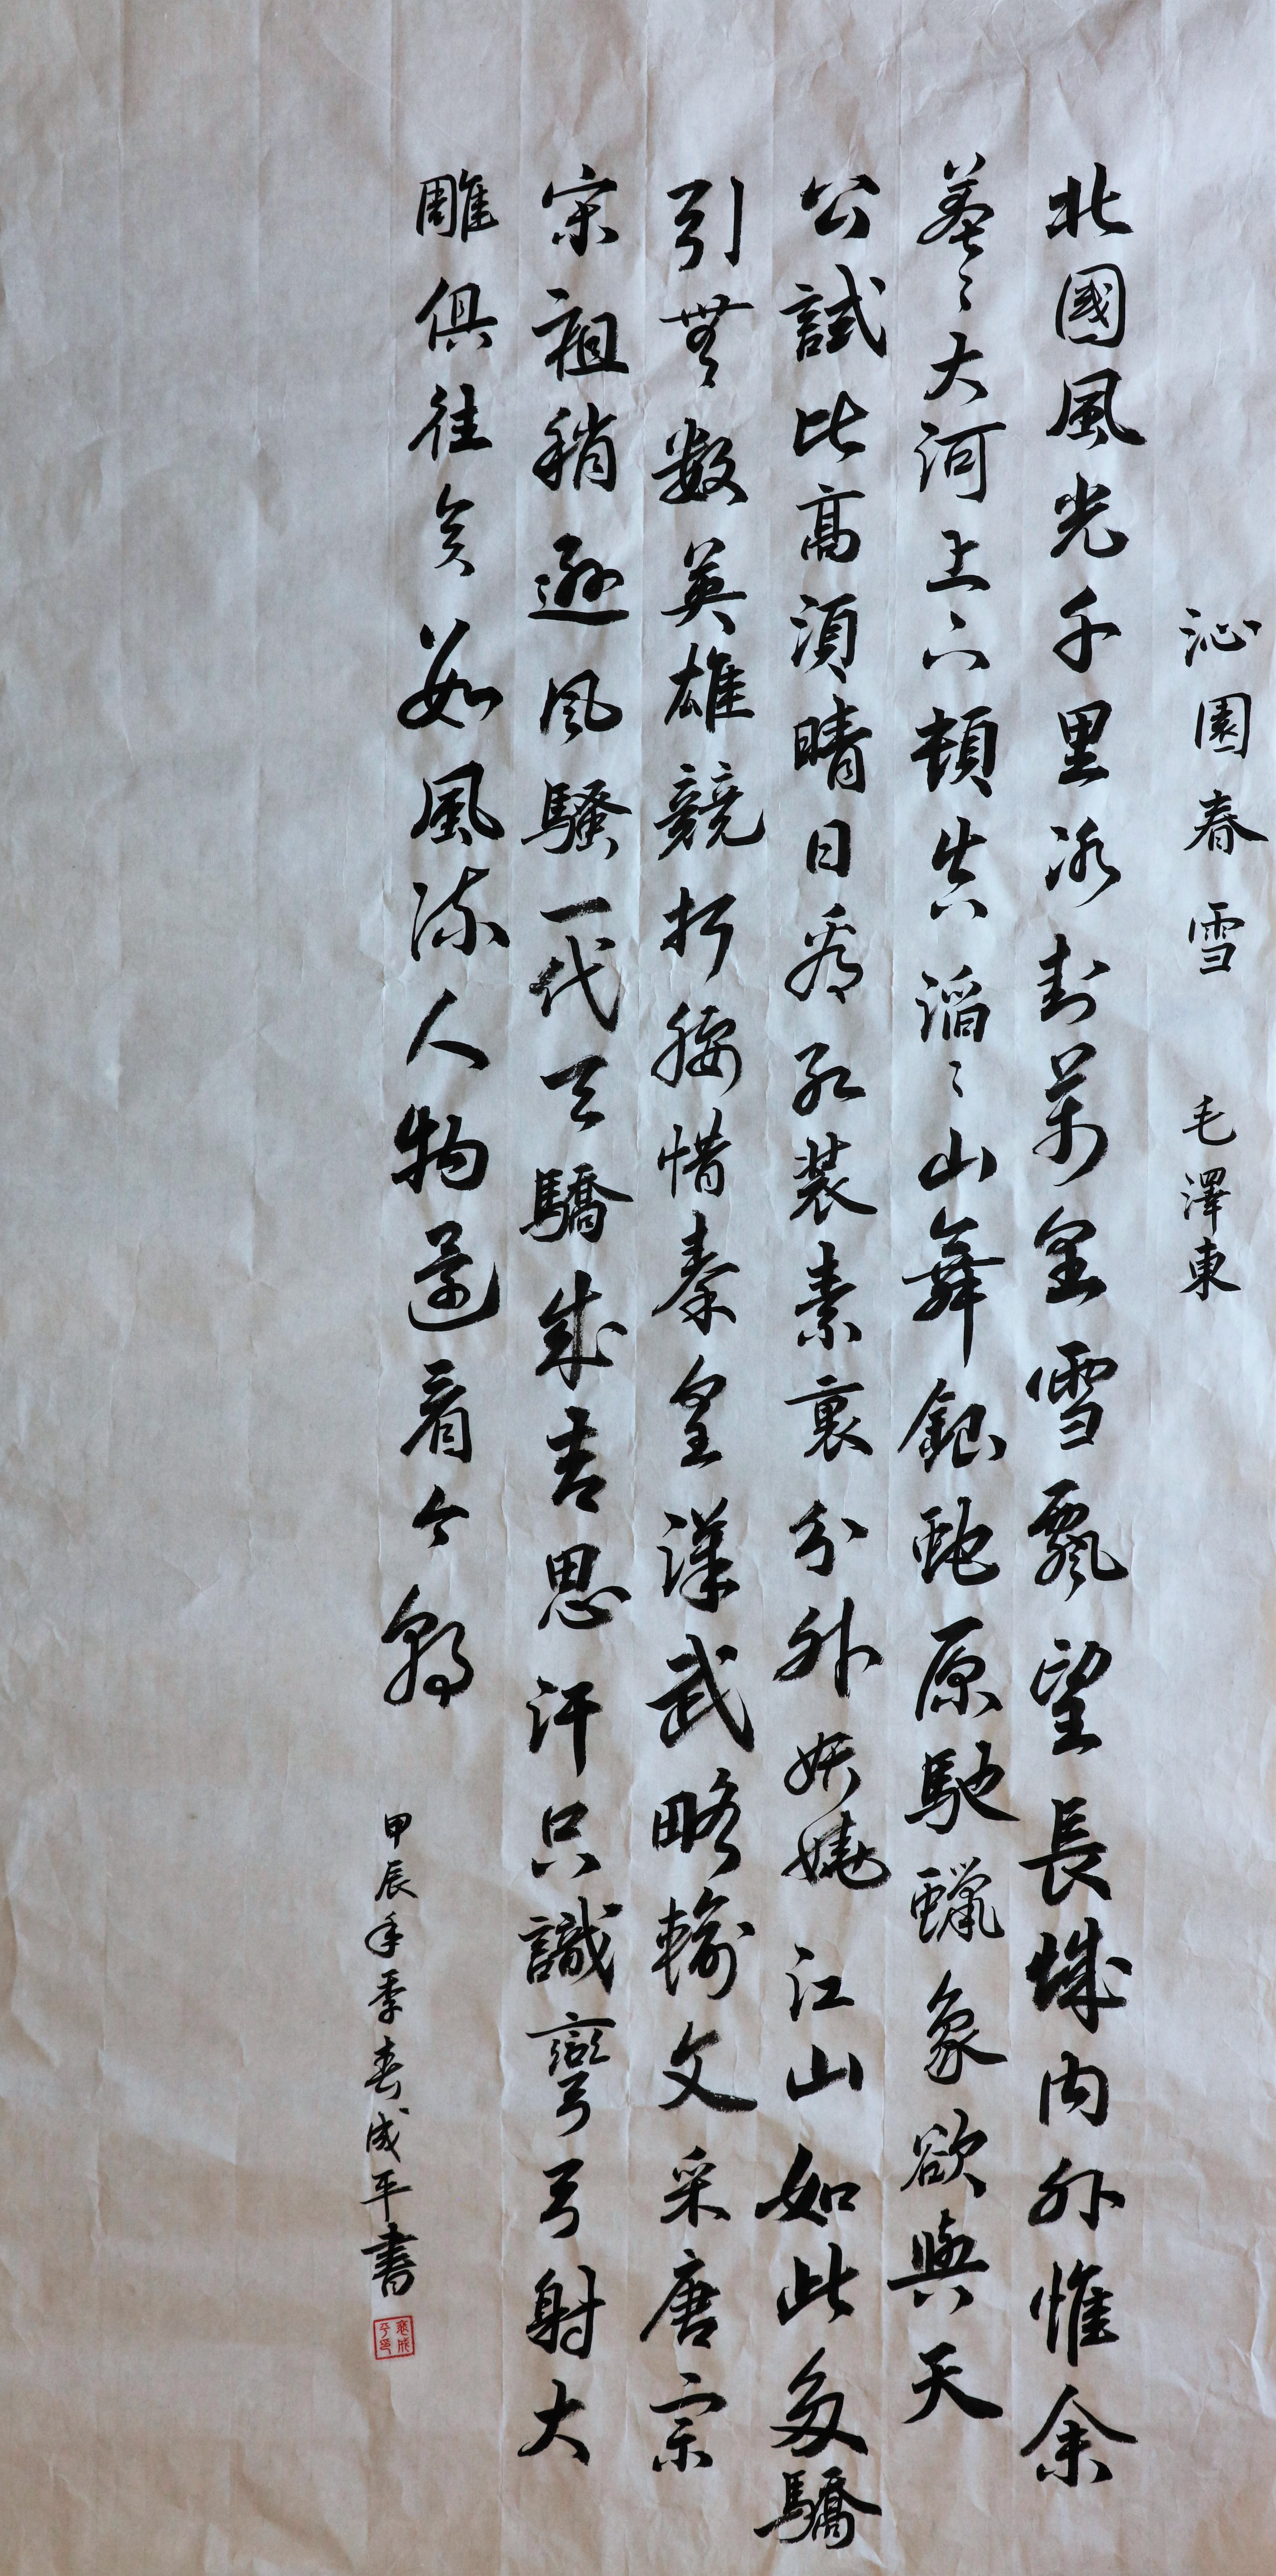 沁園春 雪 毛澤東
北國風光千里冰封萬里雪飄望長城内外惟余
莽々大河上下頓失滔々山舞銀蛇原馳蠟象欲與天
公試比高須晴日看紅裝素裹分外妖嬈江山如此多驕
引無數英雄競折腰惜秦皇漢武略輸文采唐宗
宋祖稍遜風騷一代天驕成吉思汗只識彎弓射大
雕俱往矣数風流人物還看今朝
甲辰年季春成平書